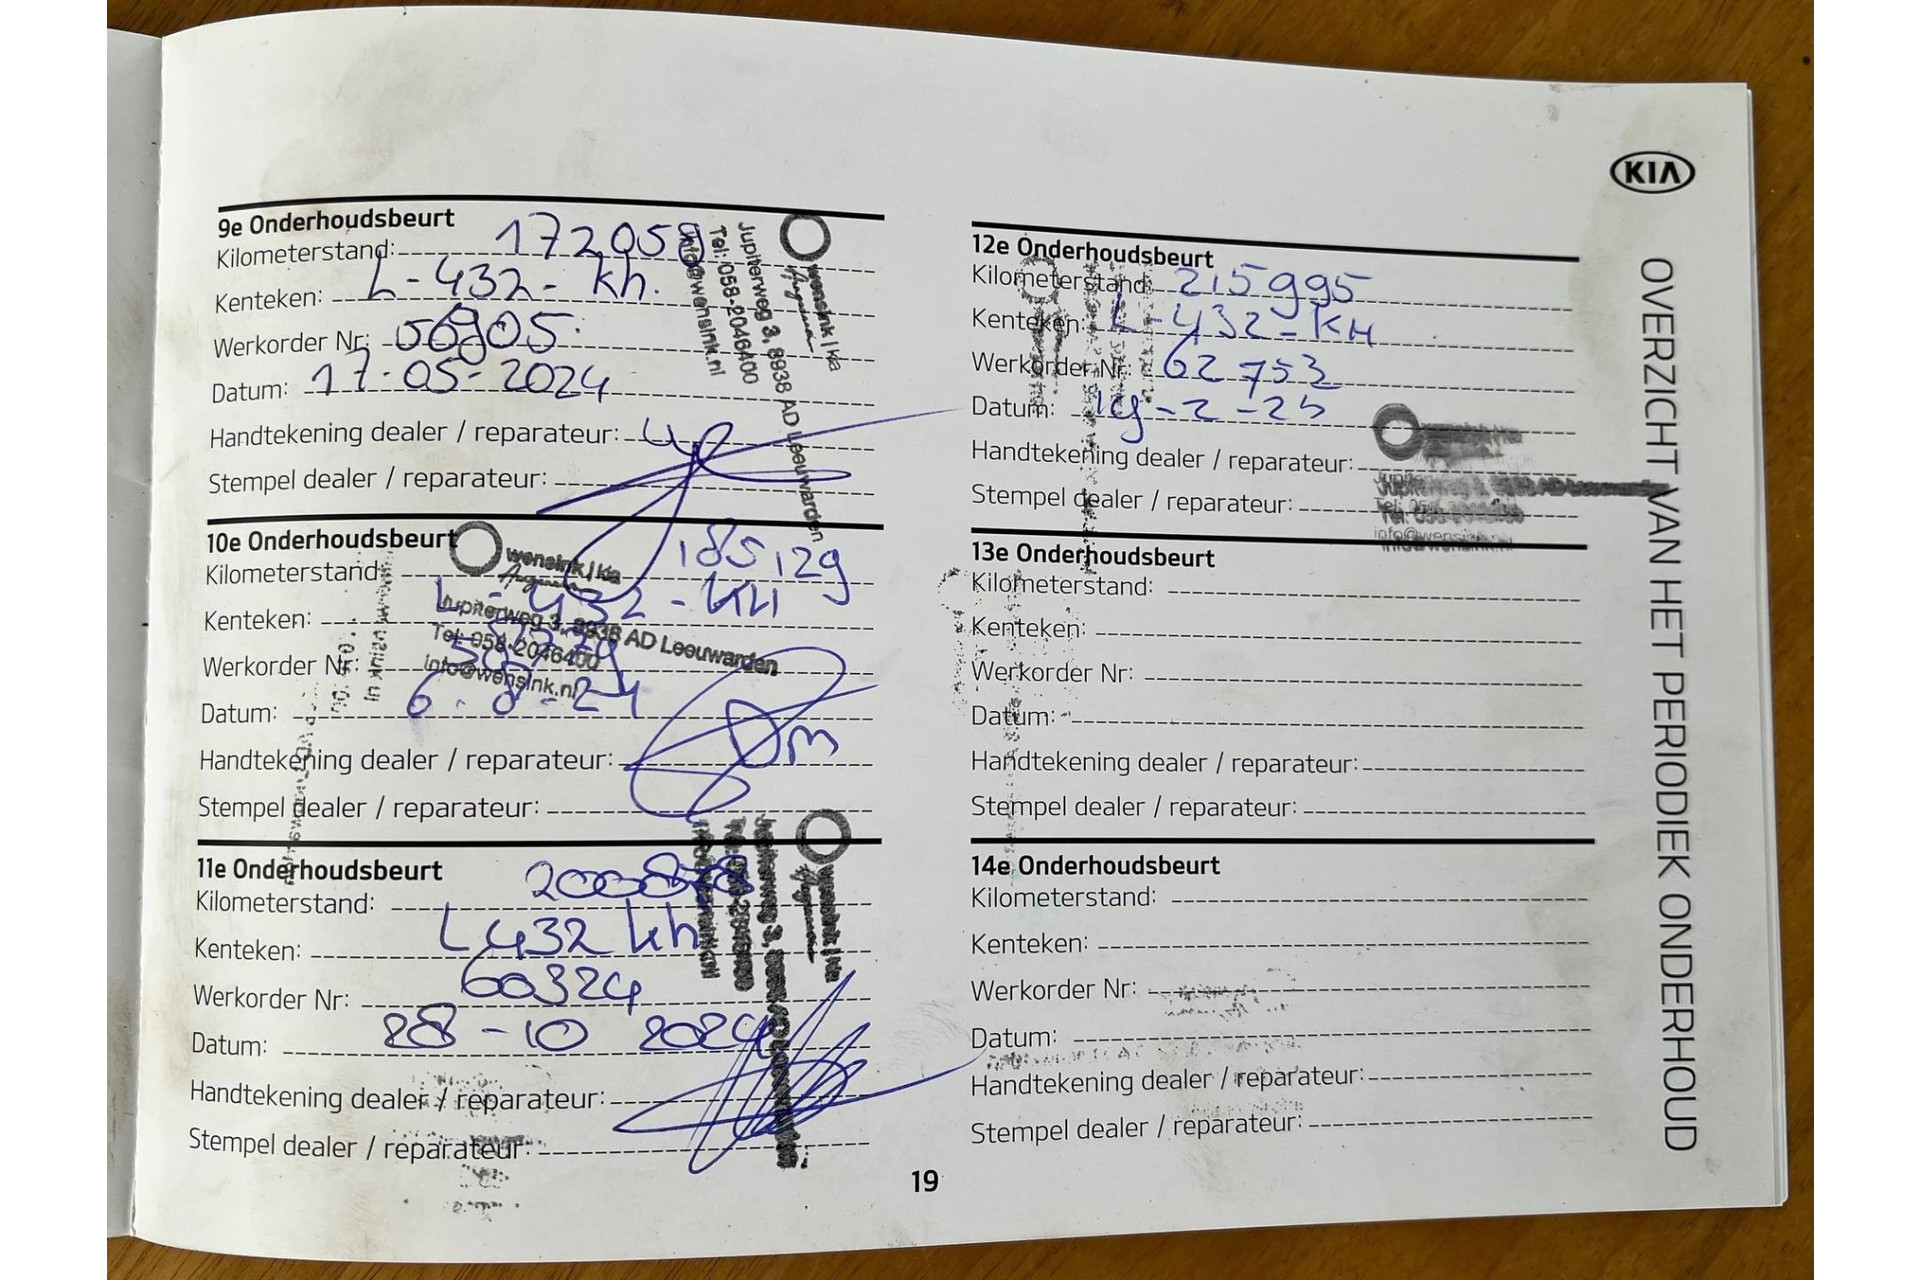 KIA
OVERZICHT VAN HET PERIODIEK ONDERHOUD
9e Onderhoudsbeurt
Kilometerstand: 172059
Kenteken: L-432-kh.
Werkorder Nr: 56905.
Datum: 17-05-2024
Handtekening dealer / reparateur:
Stempel dealer / reparateur:
wensink | kia
Jupiterweg 3, 8938 AD Leeuwarden
Tel: 058-2046400
info@wensink.nl
10e Onderhoudsbeurt
Kilometerstand: 185129
Kenteken: L-432-KH
Werkorder Nr:
Datum: 6-8-24
Handtekening dealer / reparateur:
Stempel dealer / reparateur:
wensink | kia
Jupiterweg 3, 8938 AD Leeuwarden
Tel: 058-2046400
info@wensink.nl
11e Onderhoudsbeurt
Kilometerstand: 200878
Kenteken: L432 kh
Werkorder Nr: 60324
Datum: 28-10 2024
Handtekening dealer / reparateur:
Stempel dealer / reparateur:
wensink | kia
Jupiterweg 3,
12e Onderhoudsbeurt
Kilometerstand: 215995
Kenteken: L-432-KH
Werkorder Nr: 62753
Datum: 19-2-25
Handtekening dealer / reparateur:
Stempel dealer / reparateur:
info@wensink.nl
13e Onderhoudsbeurt
Kilometerstand:
Kenteken:
Werkorder Nr:
Datum:
Handtekening dealer / reparateur:
Stempel dealer / reparateur:
14e Onderhoudsbeurt
Kilometerstand:
Kenteken:
Werkorder Nr:
Datum:
Handtekening dealer / reparateur:
Stempel dealer / reparateur:
19